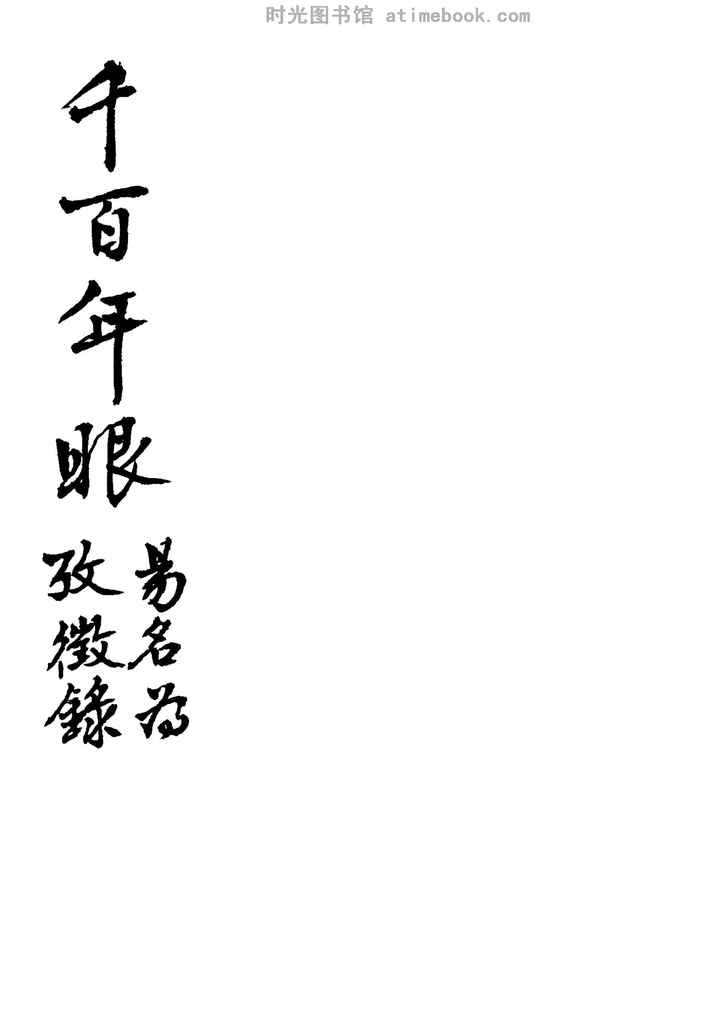 时光图书馆 atimebook.com
千百年眼
易名為
攷徵錄